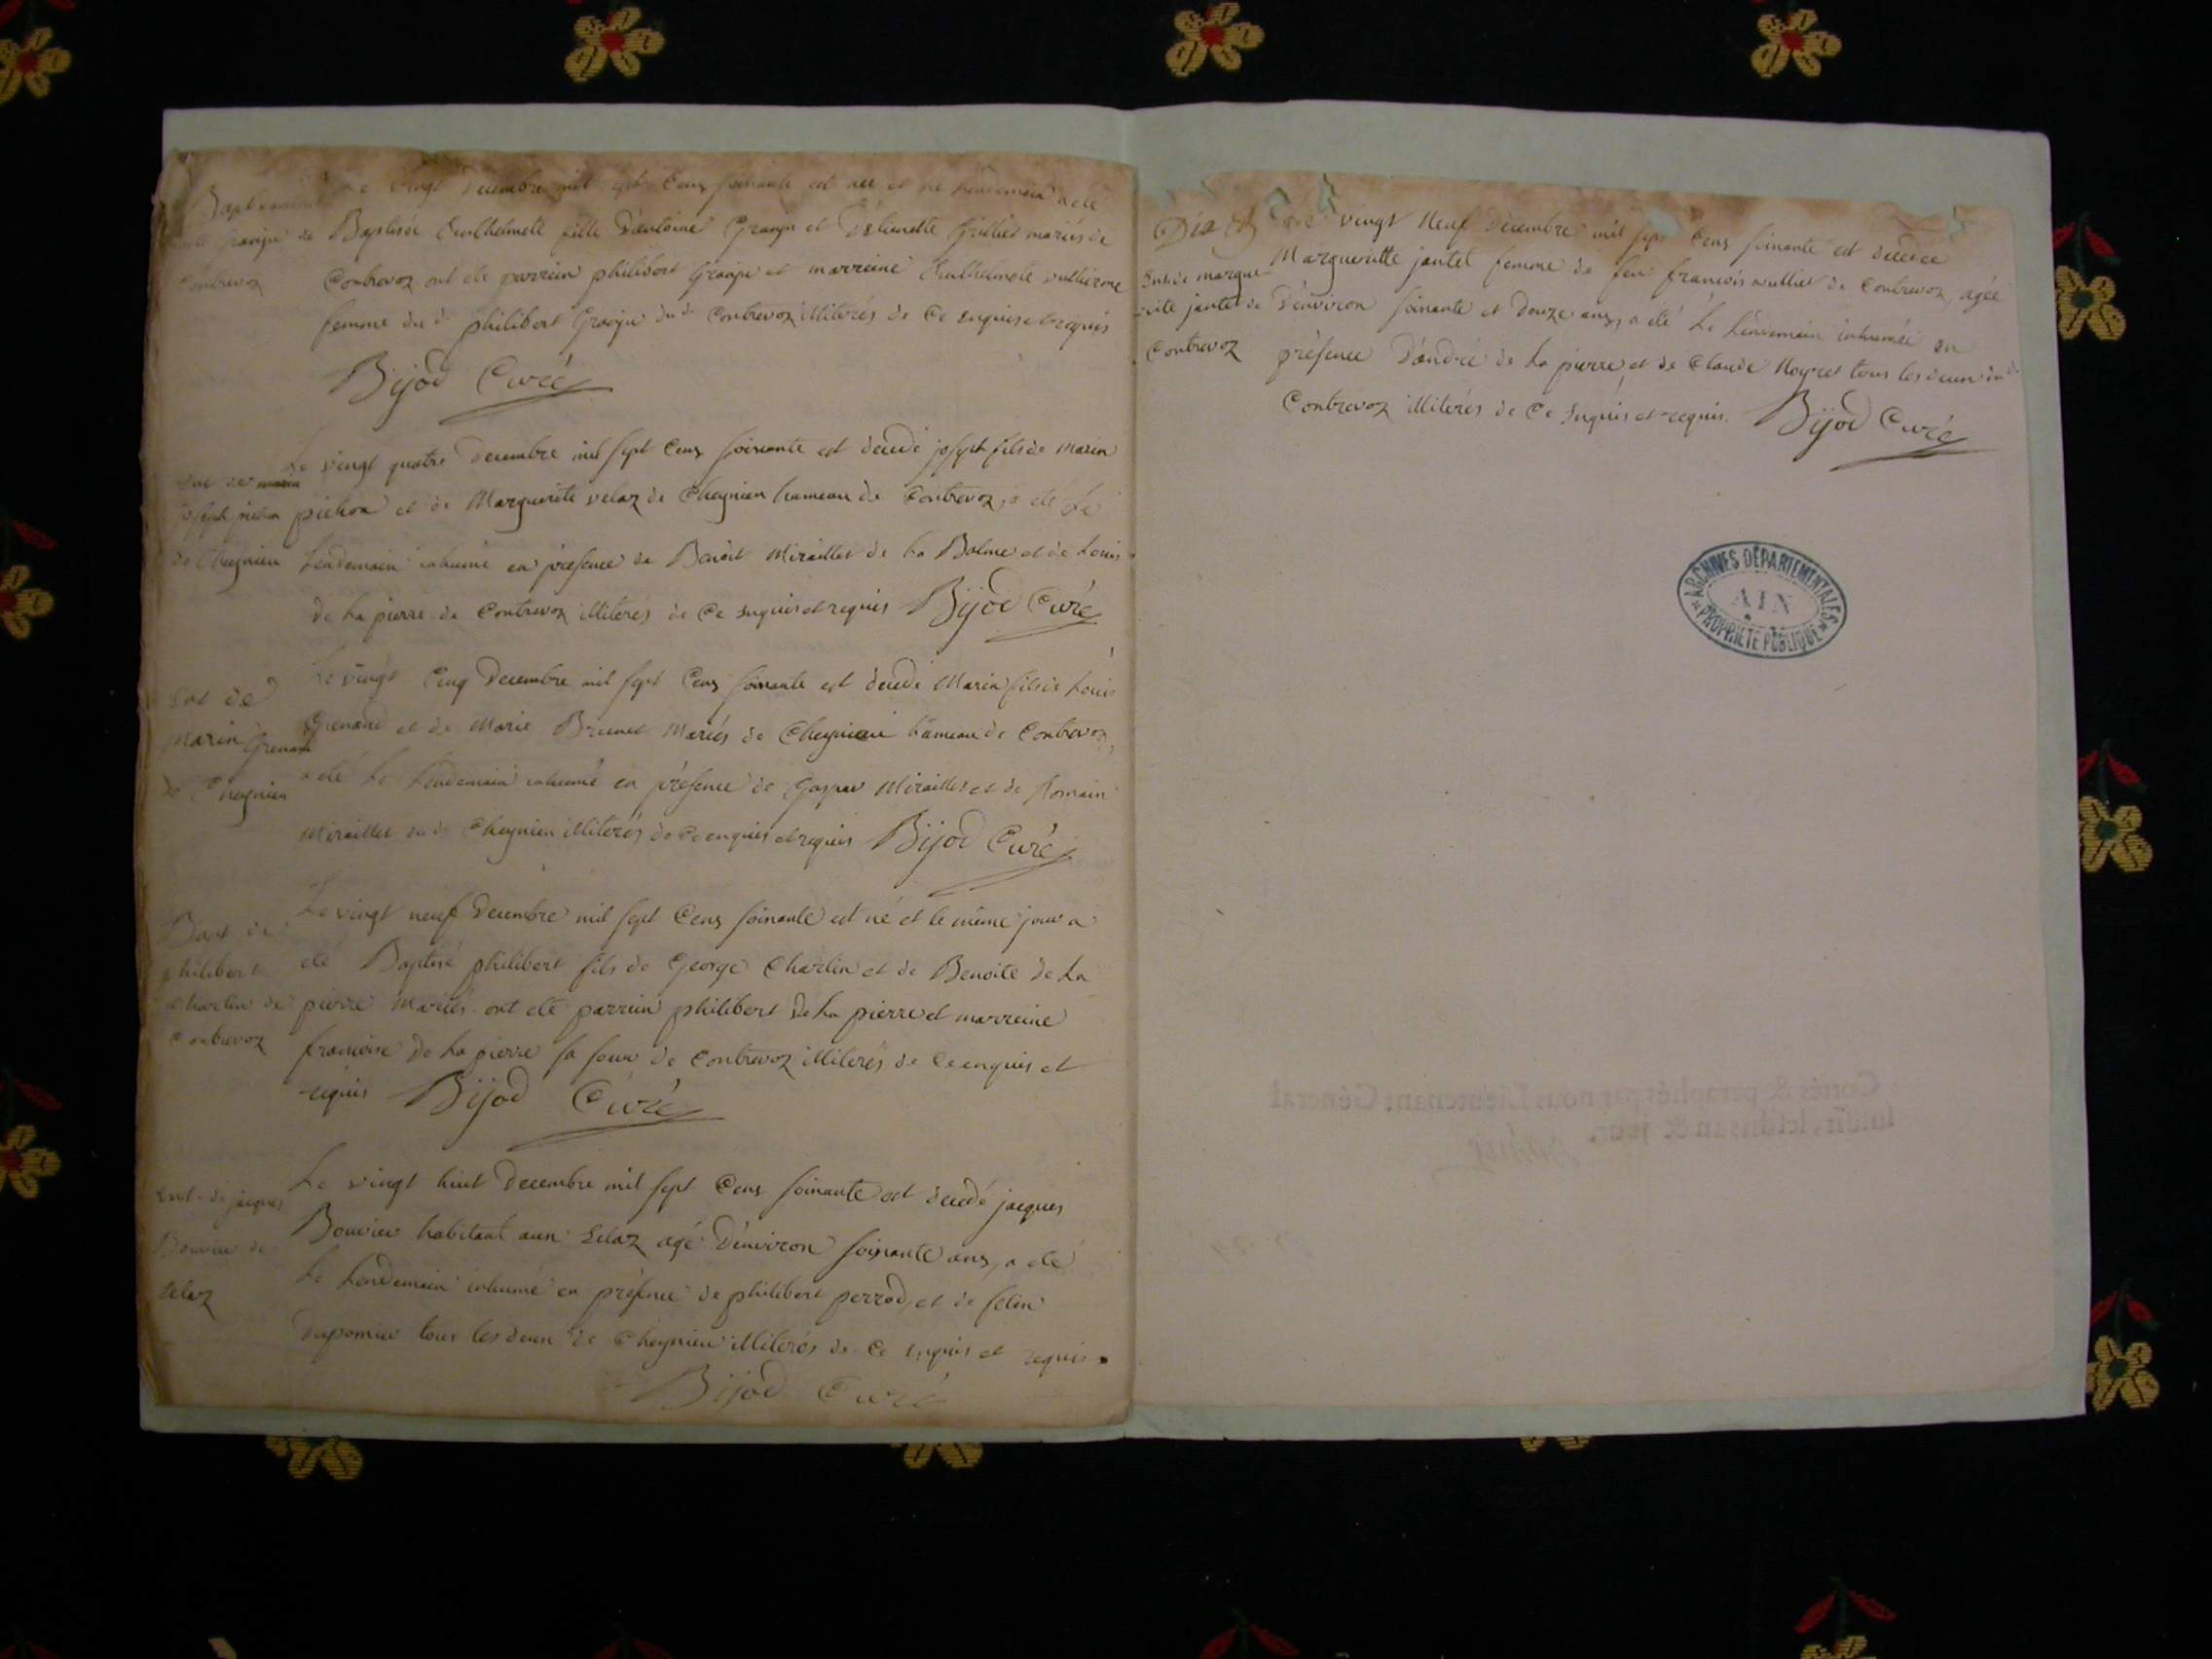 vingt Decembre mil sept Cens soixante est née et le lendemain a été
Baptisée fille D'antoine Granju et mariés de
Contrevoz ont été parrein philibert Granju et marreine
femme du d. philibert Granju dud. Contrevoz illiterés de Ce enquis et requis
de
Contrevoz
Bijod Curé
Le vingt quatre Decembre mil sept Cens soixante est decedé joseph fils de Marin
pichon et de Marguerite velaz de Cheynieu hameau de Contrevoz, a été Le
Lendemain inhumé en présence de Benoit Miraillet de La Balme et de Louis
de La pierre de Contrevoz illiterés de Ce enquis et requis Bijod Curé
joseph pichon
de Cheynieu
Le vingt Cinq Decembre mil sept Cens soixante est decedé Marin fils de Louis
Grenand et de Marie Brunet Mariés de Cheynieu hameau de Contrevoz,
a été Le Lendemain inhumé en présence de Gaspar Miraillet et de Romain
Miraillet du d. Cheynieu illiterés de Ce enquis et requis Bijod Curé
Ent de
Marin Grenand
de Cheynieu
Le vingt neuf Decembre mil sept Cens soixante est né et le même jour a
été Baptisé philibert fils de George Charlin et de Benoite de La
pierre Mariés. ont été parrein philibert De La pierre et marreine
francoise De La pierre sa soeur de Contrevoz illiterés de Ce enquis et
requis Bijod Curé
Bapt de
philibert
Charlin de
Contrevoz
Le vingt huit Decembre mil sept Cens soixante est decedé jacques
Bouvier habitant aux Selaz agé D'environ soixante ans, a été
Le Lendemain inhumé en présence de philibert perrod, et de
tous les deux de Cheynieu illiterés de Ce enquis et requis.
Bijod Curé
Ent. de jacques
Bouvier de
Selaz
vingt Neuf Decembre mil sept Cens soixante est decedée
Margueritte jantet femme de feu francois vulliet de Contrevoz, agée
D'environ soixante et Douze ans, a été Le Lendemain inhumée en
présence D'andré de La pierre, et de Claude Noyret tous les deux dud.
Contrevoz illiterés de Ce Enquis et requis. Bijod Curé
Ent. de margue
ritte jantet de
Contrevoz
ARCHIVES DÉPARTEMENTALES
AIN
PROPRIÉTÉ PUBLIQUE